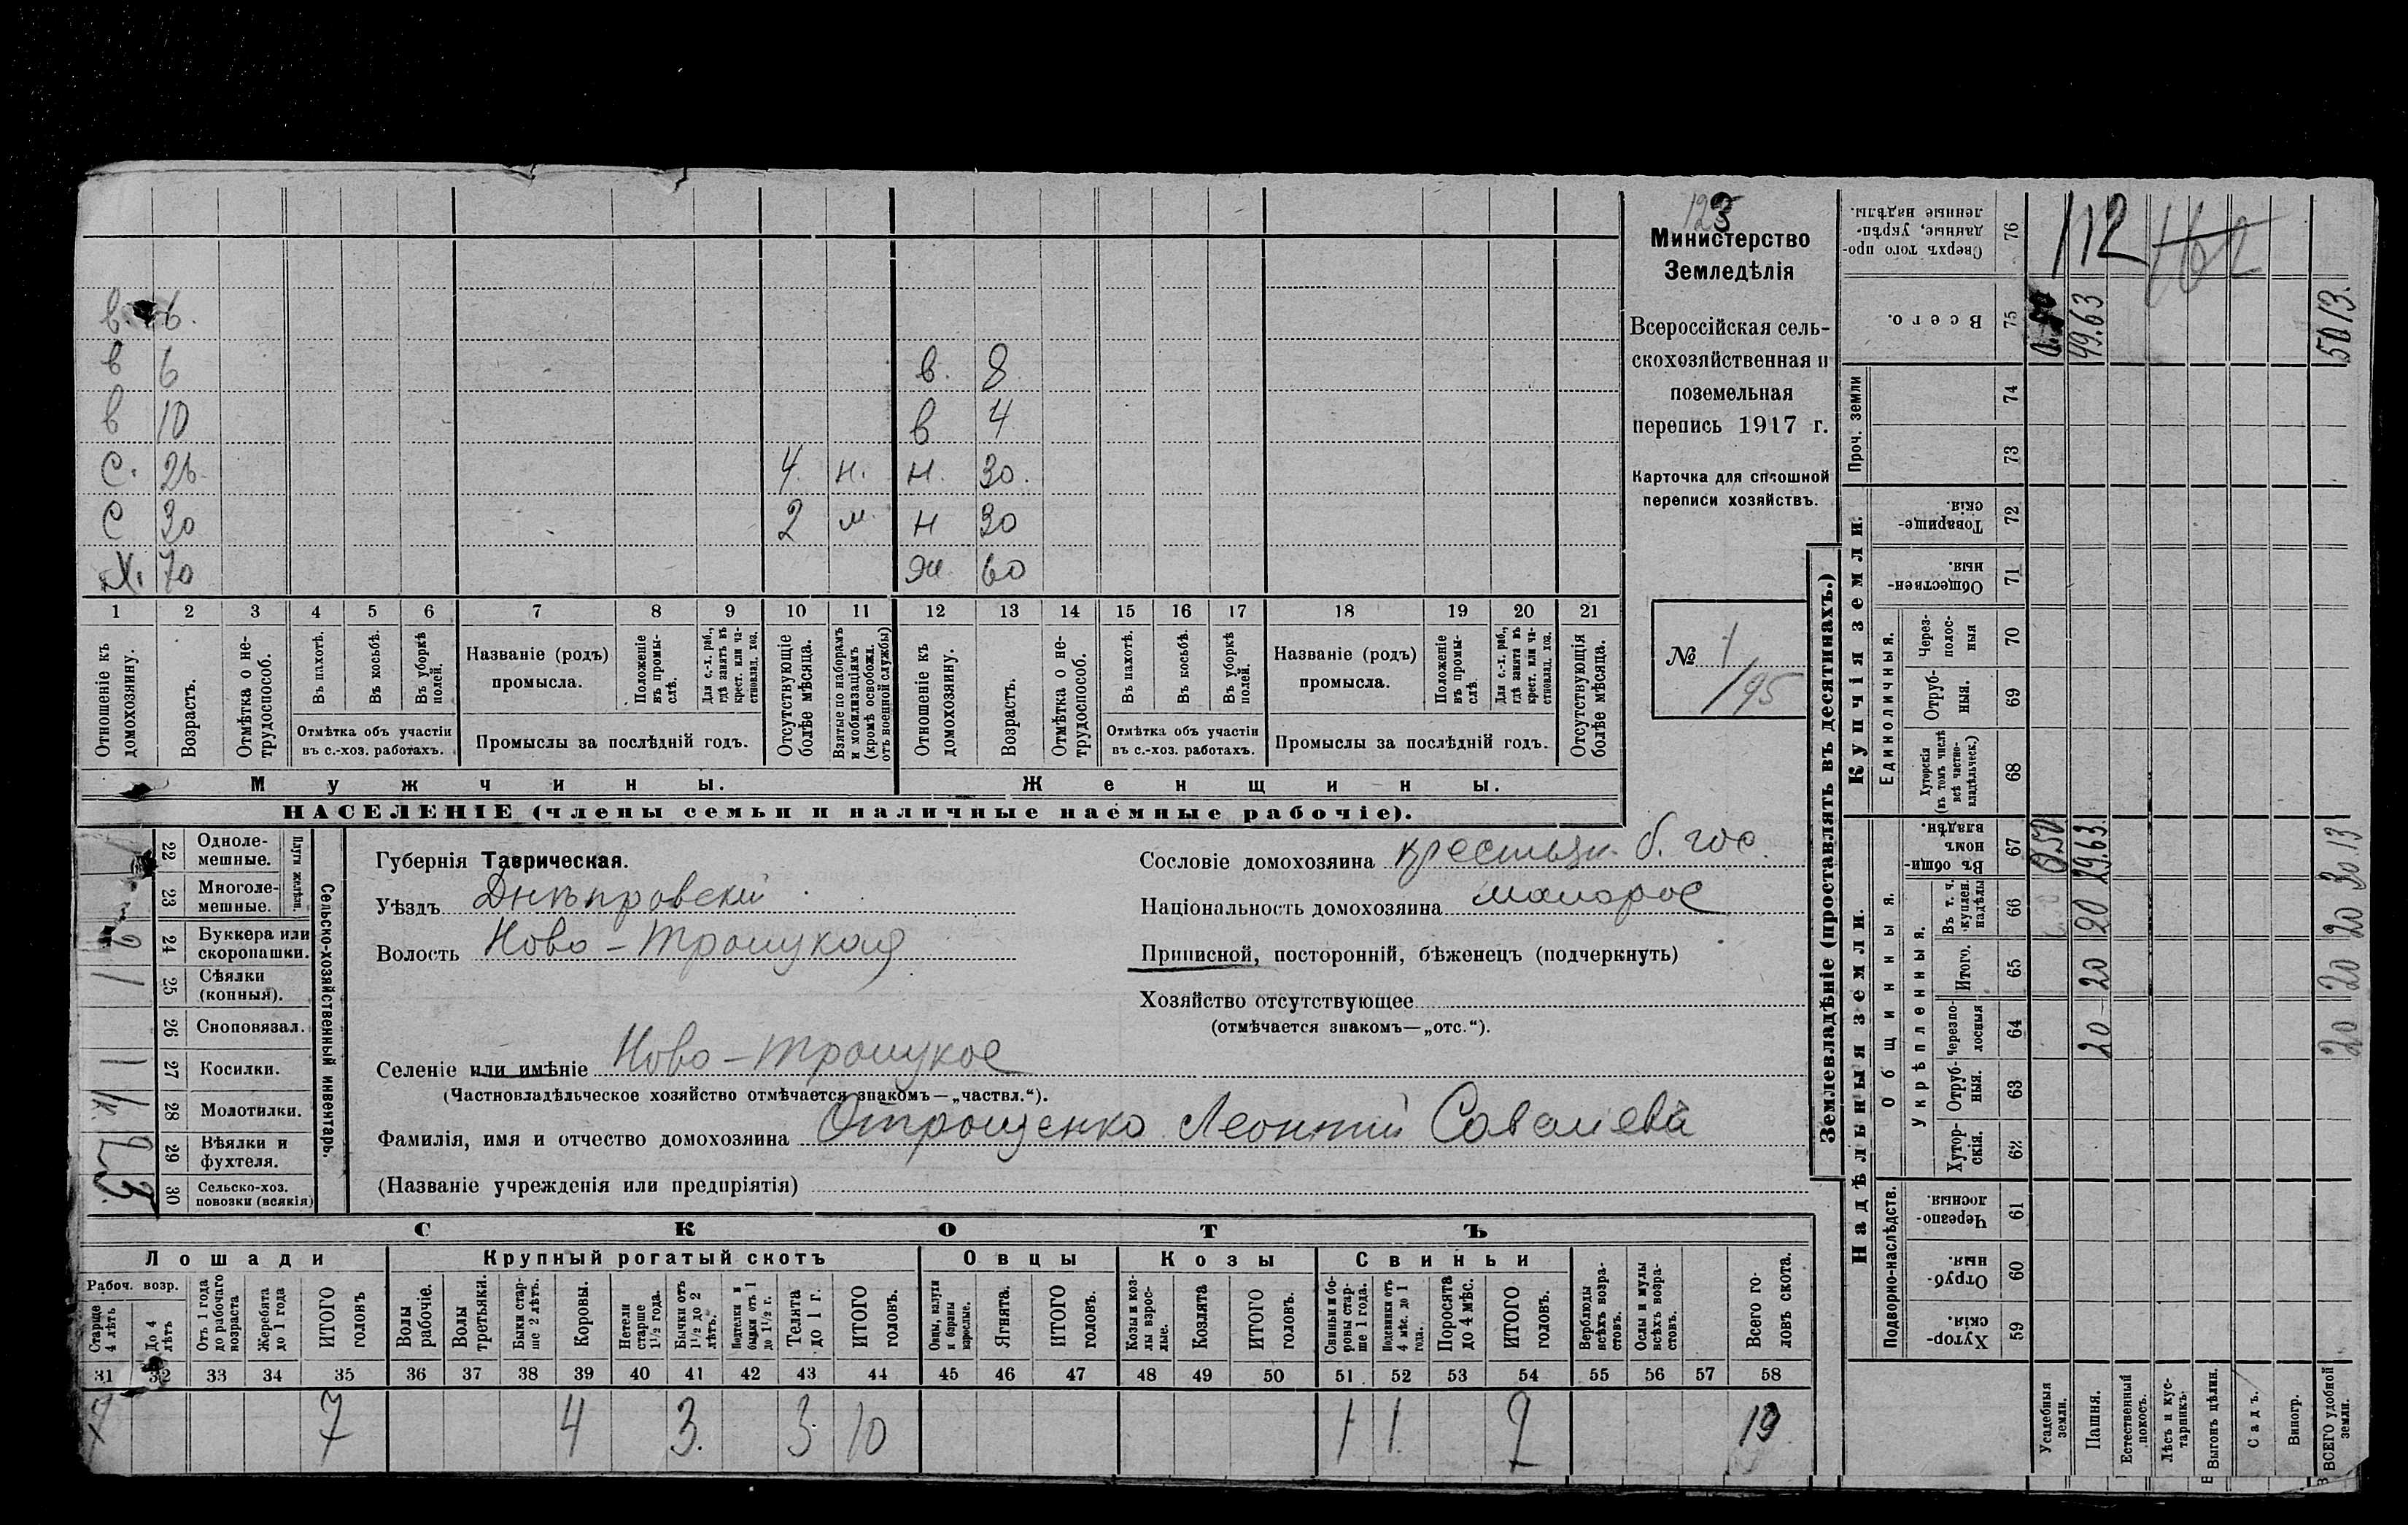 123
Министерство
Земледѣлія
Всероссійская сель-
скохозяйственная и
поземельная
перепись 1917 г.
Карточка для сплошной
переписи хозяйствъ.
№ 1
/95
в. 6.
в 6 в. 8
в 10 в 4
С. 26 4 н. н. 30.
С 30 2 м н 30
Х. 70 ж 60
1 2 3 4 5 6 7 8 9 10 11 12 13 14 15 16 17 18 19 20 21
Отношеніе къ домохозяину.
Возрастъ.
Отмѣтка о не-трудоспособ.
Въ пахотѣ.
Въ косьбѣ.
Въ уборкѣ полей.
Отмѣтка объ участіи
въ с.-хоз. работахъ.
Названіе (родъ)
промысла.
Положеніе въ промы-слѣ.
Для с.-х. раб., гдѣ занятъ въ крест. или ча-стновлад. хоз.
Промыслы за послѣдній годъ.
Отсутствующіе болѣе мѣсяца.
Взятые по наборамъ и мобилизаціямъ (кромѣ освобожд. отъ военной службы)
Отношеніе къ домохозяину.
Возрастъ.
Отмѣтка о не-трудоспособ.
Въ пахотѣ.
Въ косьбѣ.
Въ уборкѣ полей.
Отмѣтка объ участіи
въ с.-хоз. работахъ.
Названіе (родъ)
промысла.
Положеніе въ промы-слѣ.
Для с.-х. раб., гдѣ занята въ крест. или ча-стновлад. хоз.
Промыслы за послѣдній годъ.
Отсутствующія болѣе мѣсяца.
Мужчины. Женщины.
НАСЕЛЕНІЕ (члены семьи и наличные наемные рабочіе).
Сельско-хозяйственный инвентарь.
Плуги желѣзн.
22 Одноле-мешные.
23 Многоле-мешные.
24 Буккера или скоропашки.
25 Сѣялки (конныя). 1
26 Сноповязал.
27 Косилки. 1
28 Молотилки. 1к
29 Вѣялки и фухтеля.
30 Сельско-хоз. повозки (всякія) 3
Губернія Таврическая.
Уѣздъ Днѣпровскій
Волость Ново-Троицкая
Селеніе или имѣніе Ново-Троицкое
(Частновладѣльческое хозяйство отмѣчается знакомъ—„частвл.“).
Фамилія, имя и отчество домохозяина Отрощенко Леонтій Савельевъ
(Названіе учрежденія или предпріятія)
Сословіе домохозяина крестьян. б. гос.
Національность домохозяина малорос
Приписной, посторонній, бѣженецъ (подчеркнуть)
Хозяйство отсутствующее
(отмѣчается знакомъ—„отс.“).
СКОТЪ
Лошади Крупный рогатый скотъ Овцы Козы Свиньи
Рабоч. возр.
Старше 4 лѣтъ
До 4 лѣтъ
Отъ 1 года до рабочаго возраста
Жеребята до 1 года
ИТОГО головъ
Волы рабочіе.
Волы третьяки.
Быки стар-ше 2 лѣтъ.
Коровы.
Нетели старше 1½ года.
Бычки отъ 1½ до 2 лѣтъ.
Подтелки и бычки отъ 1 до 1½ г.
Телята до 1 г.
ИТОГО головъ.
Овцы, валухи и бараны взрослые.
Ягнята.
ИТОГО головъ.
Козы и коз-лы взрос-лые.
Козлята
ИТОГО головъ.
Свиньи и бо-ровы стар-ше 1 года.
Подсвинки отъ 4 мѣс. до 1 года.
Поросята до 4 мѣс.
ИТОГО головъ.
Верблюды всѣхъ возра-стовъ.
Ослы и мулы всѣхъ возра-стовъ.
Всего го-ловъ скота.
31 32 33 34 35 36 37 38 39 40 41 42 43 44 45 46 47 48 49 50 51 52 53 54 55 56 57 58
7 7 4 3. 3. 10 1 1. 2 19
Землевладѣніе (проставлять въ десятинахъ.)
Надѣльныя земли. Купчія земли.
Подворно-наслѣдств.
Общинныя.
Укрѣпленныя.
Единоличныя.
Проч. земли
Хутор-скія. 59
Отруб-ныя. 60
Черезпо-лосныя. 61
Хутор-скія. 62
Отруб-ныя. 63
Черезпо-лосныя 64
Итого. 65
Въ т. ч. куплен. надѣлы 66
Въ общи-номъ владѣн. 67
Хуторскія (въ томъ числѣ всѣ частно-владѣльческ.) 68
Отруб-ныя. 69
Через-полос-ныя 70
Обществен-ныя. 71
Товарище-скія. 72
73
74
Всего. 75
Сверхъ того про-данные, укрѣп-ленные надѣлы. 76
Усадебныя земли. 0.50
Пашня. 20 20 20 29.63 49.63
Естественный покосъ.
Лѣсъ и кус-тарникъ.
Выгонъ цѣлин.
Садъ.
Виногр.
ВСЕГО удобной земли. 20 20 20 30.13 50 13.
112
162